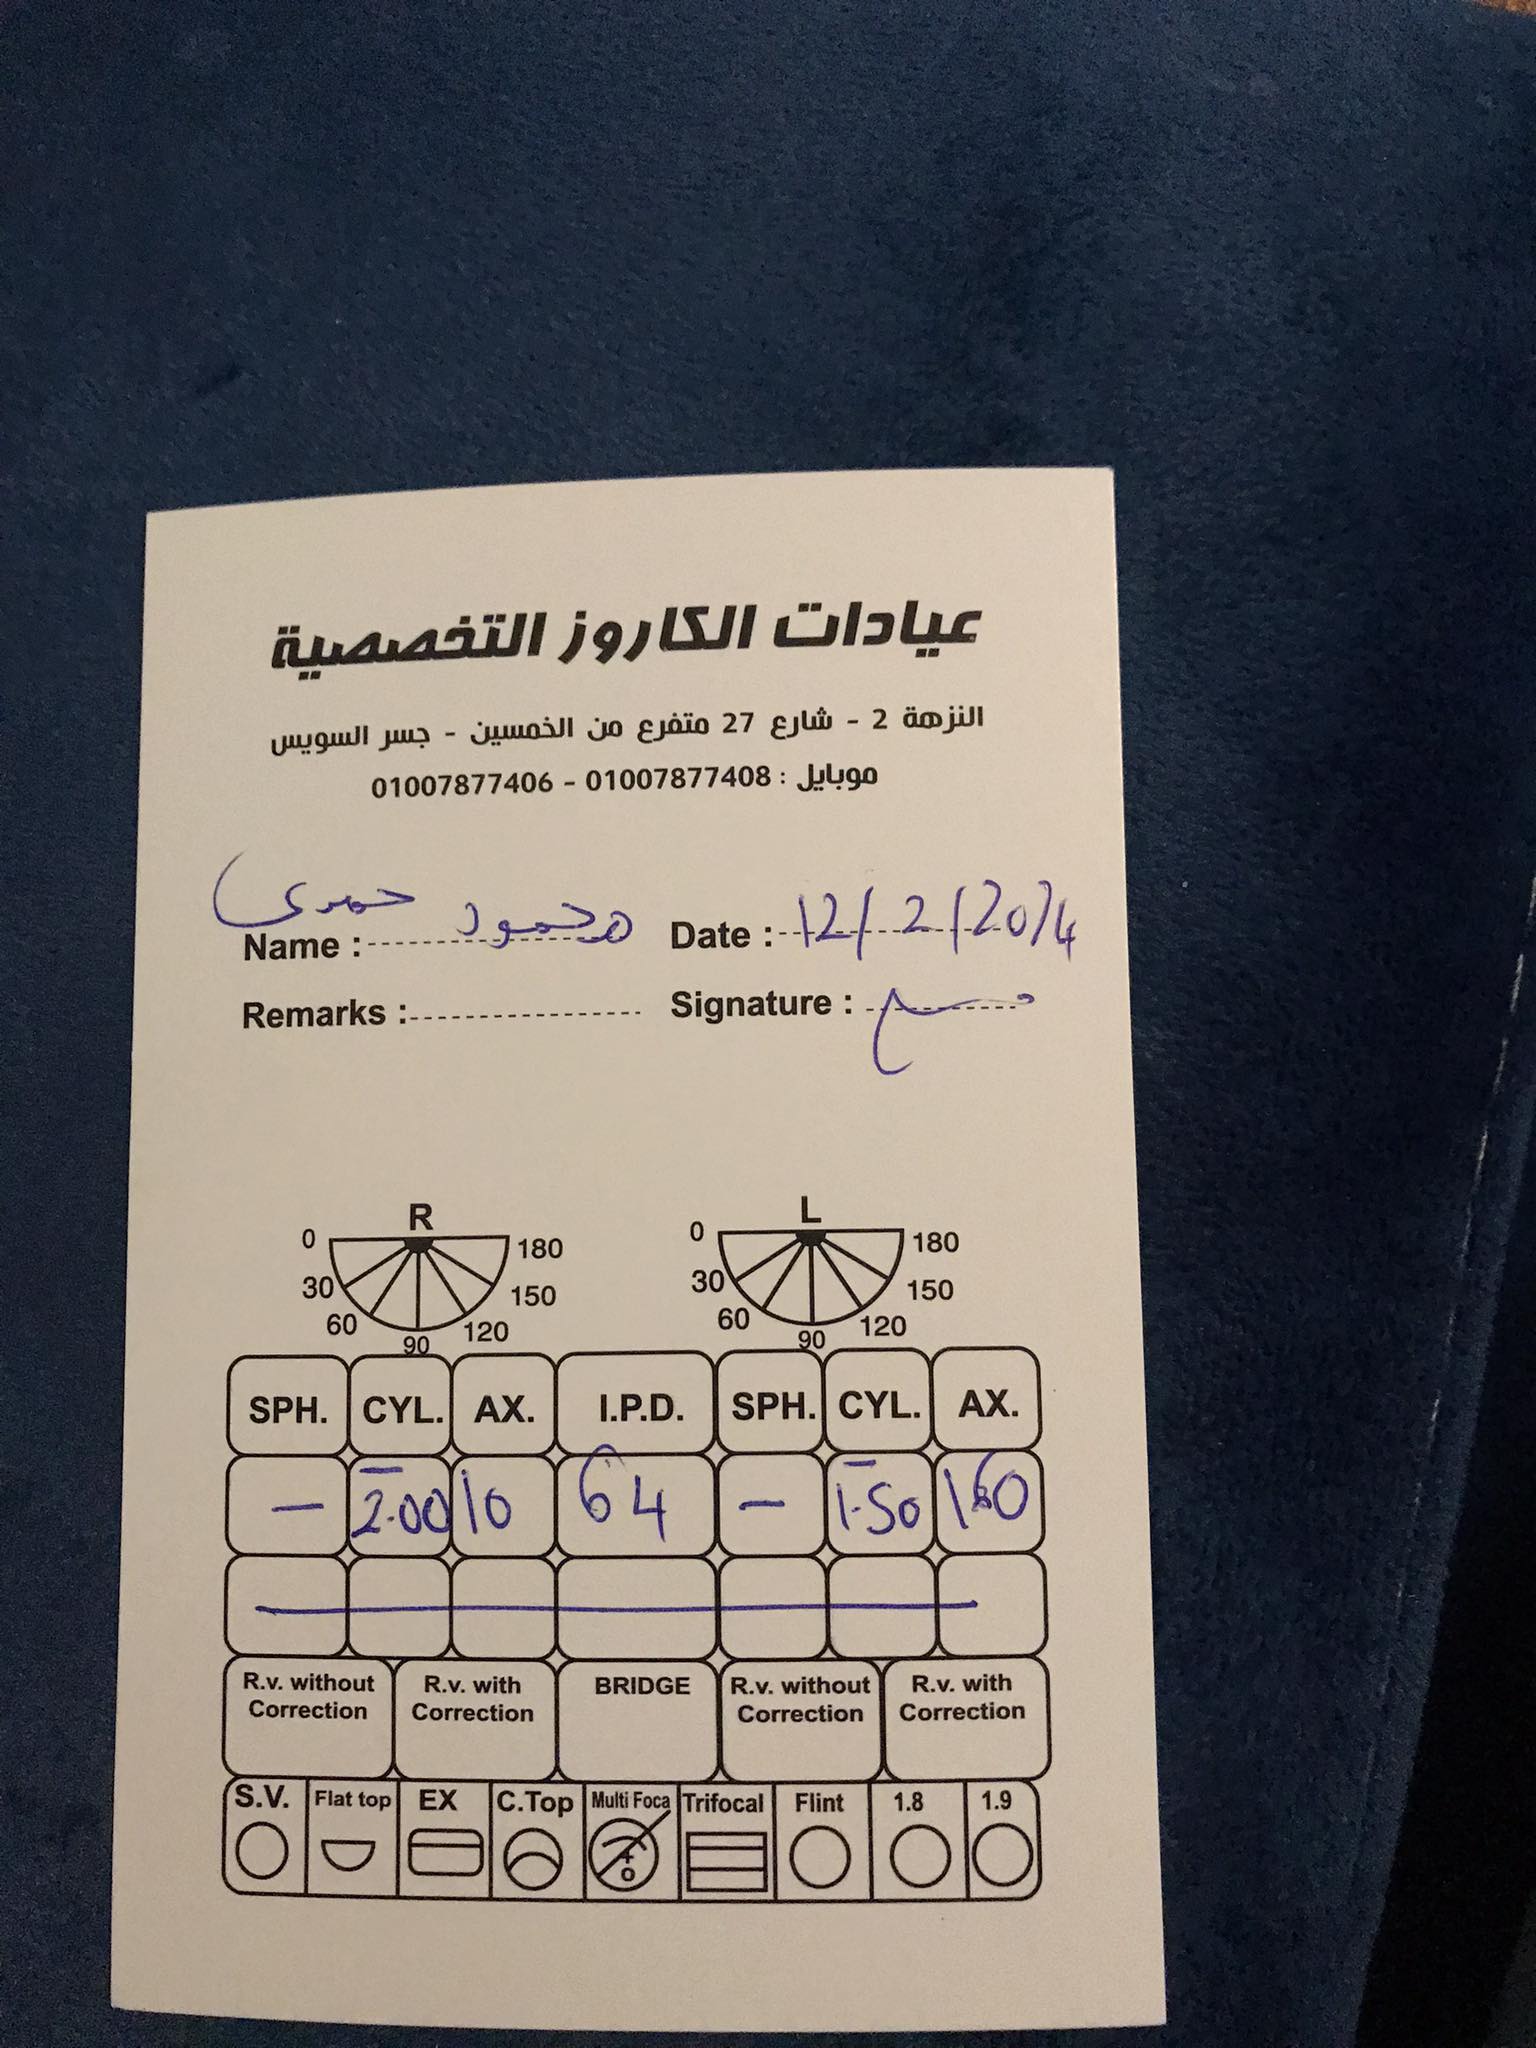 عيادات الكاروز التخصصية
النزهة 2 - شارع 27 متفرع من الخمسين - جسر السويس
موبايل : 01007877408 - 01007877406
Name : محمود حمدى Date : 12/2/2024
Remarks : Signature :
R L
0 30 60 90 120 150 180 0 30 60 90 120 150 180
SPH. CYL. AX. I.P.D. SPH. CYL. AX.
- -2.00 10 64 - -1.50 160
R.v. without Correction R.v. with Correction BRIDGE R.v. without Correction R.v. with Correction
S.V. Flat top EX C.Top Multi Foca Trifocal Flint 1.8 1.9